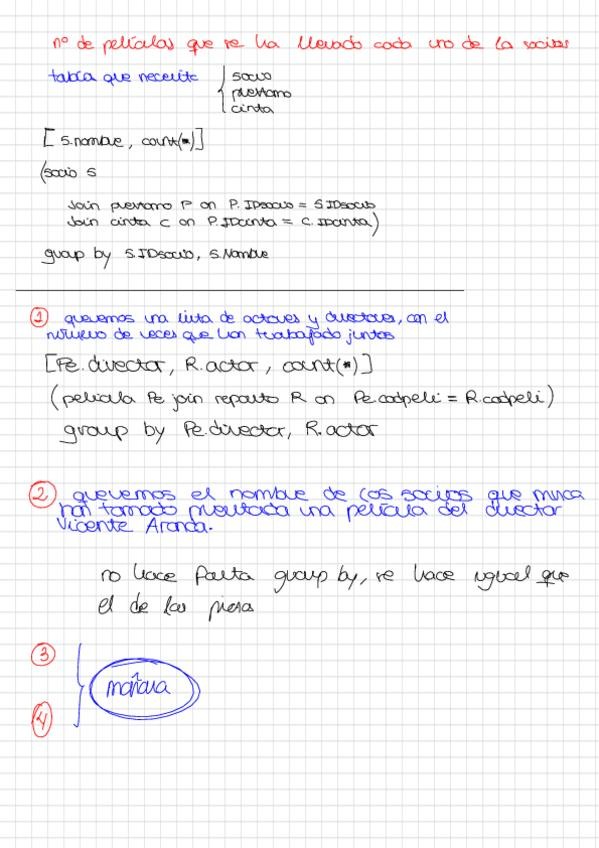 nº de películas que se ha llevado cada uno de la socios
tabla que necesite { socio
prestamo
cinta
[ S.nombre, count(*)]
(socio S
Join prestamo P on P.IDsocio = S.IDsocio
Join cinta C on P.IDcinta = C.IDcinta)
group by S.IDsocio, S.Nombre
① queremos una lista de actores y directores, con el
número de veces que han trabajado juntos
[Pe.director, R.actor, count(*)]
(pelicula Pe join reparto R on Pe.codpeli = R.codpeli)
group by Pe.director, R.actor
② queremos el nombre de los socios que nunca
han tomado prestada una película del director
Vicente Aranda.
no hace falta group by, se hace igual que
el de las
③
mañana
④